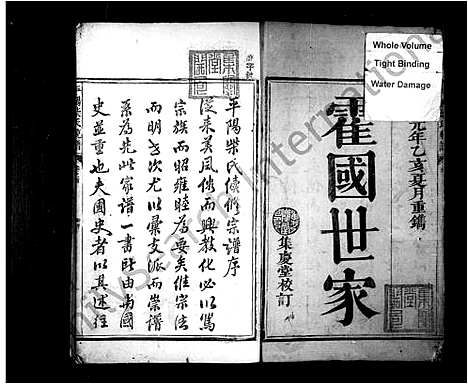 Whole Volume
Tight Binding
Water Damage
元年乙亥夏月重鐫
霍國世家
集慶堂校訂
平陽柴氏續修宗譜序
從来美風俗而興教化必以篤
宗族而昭雍睦為要矣継宗法
而明昭次尤以彙支派而崇譜
系為先此家譜一書所由与國
史並重也夫國史者以其述往